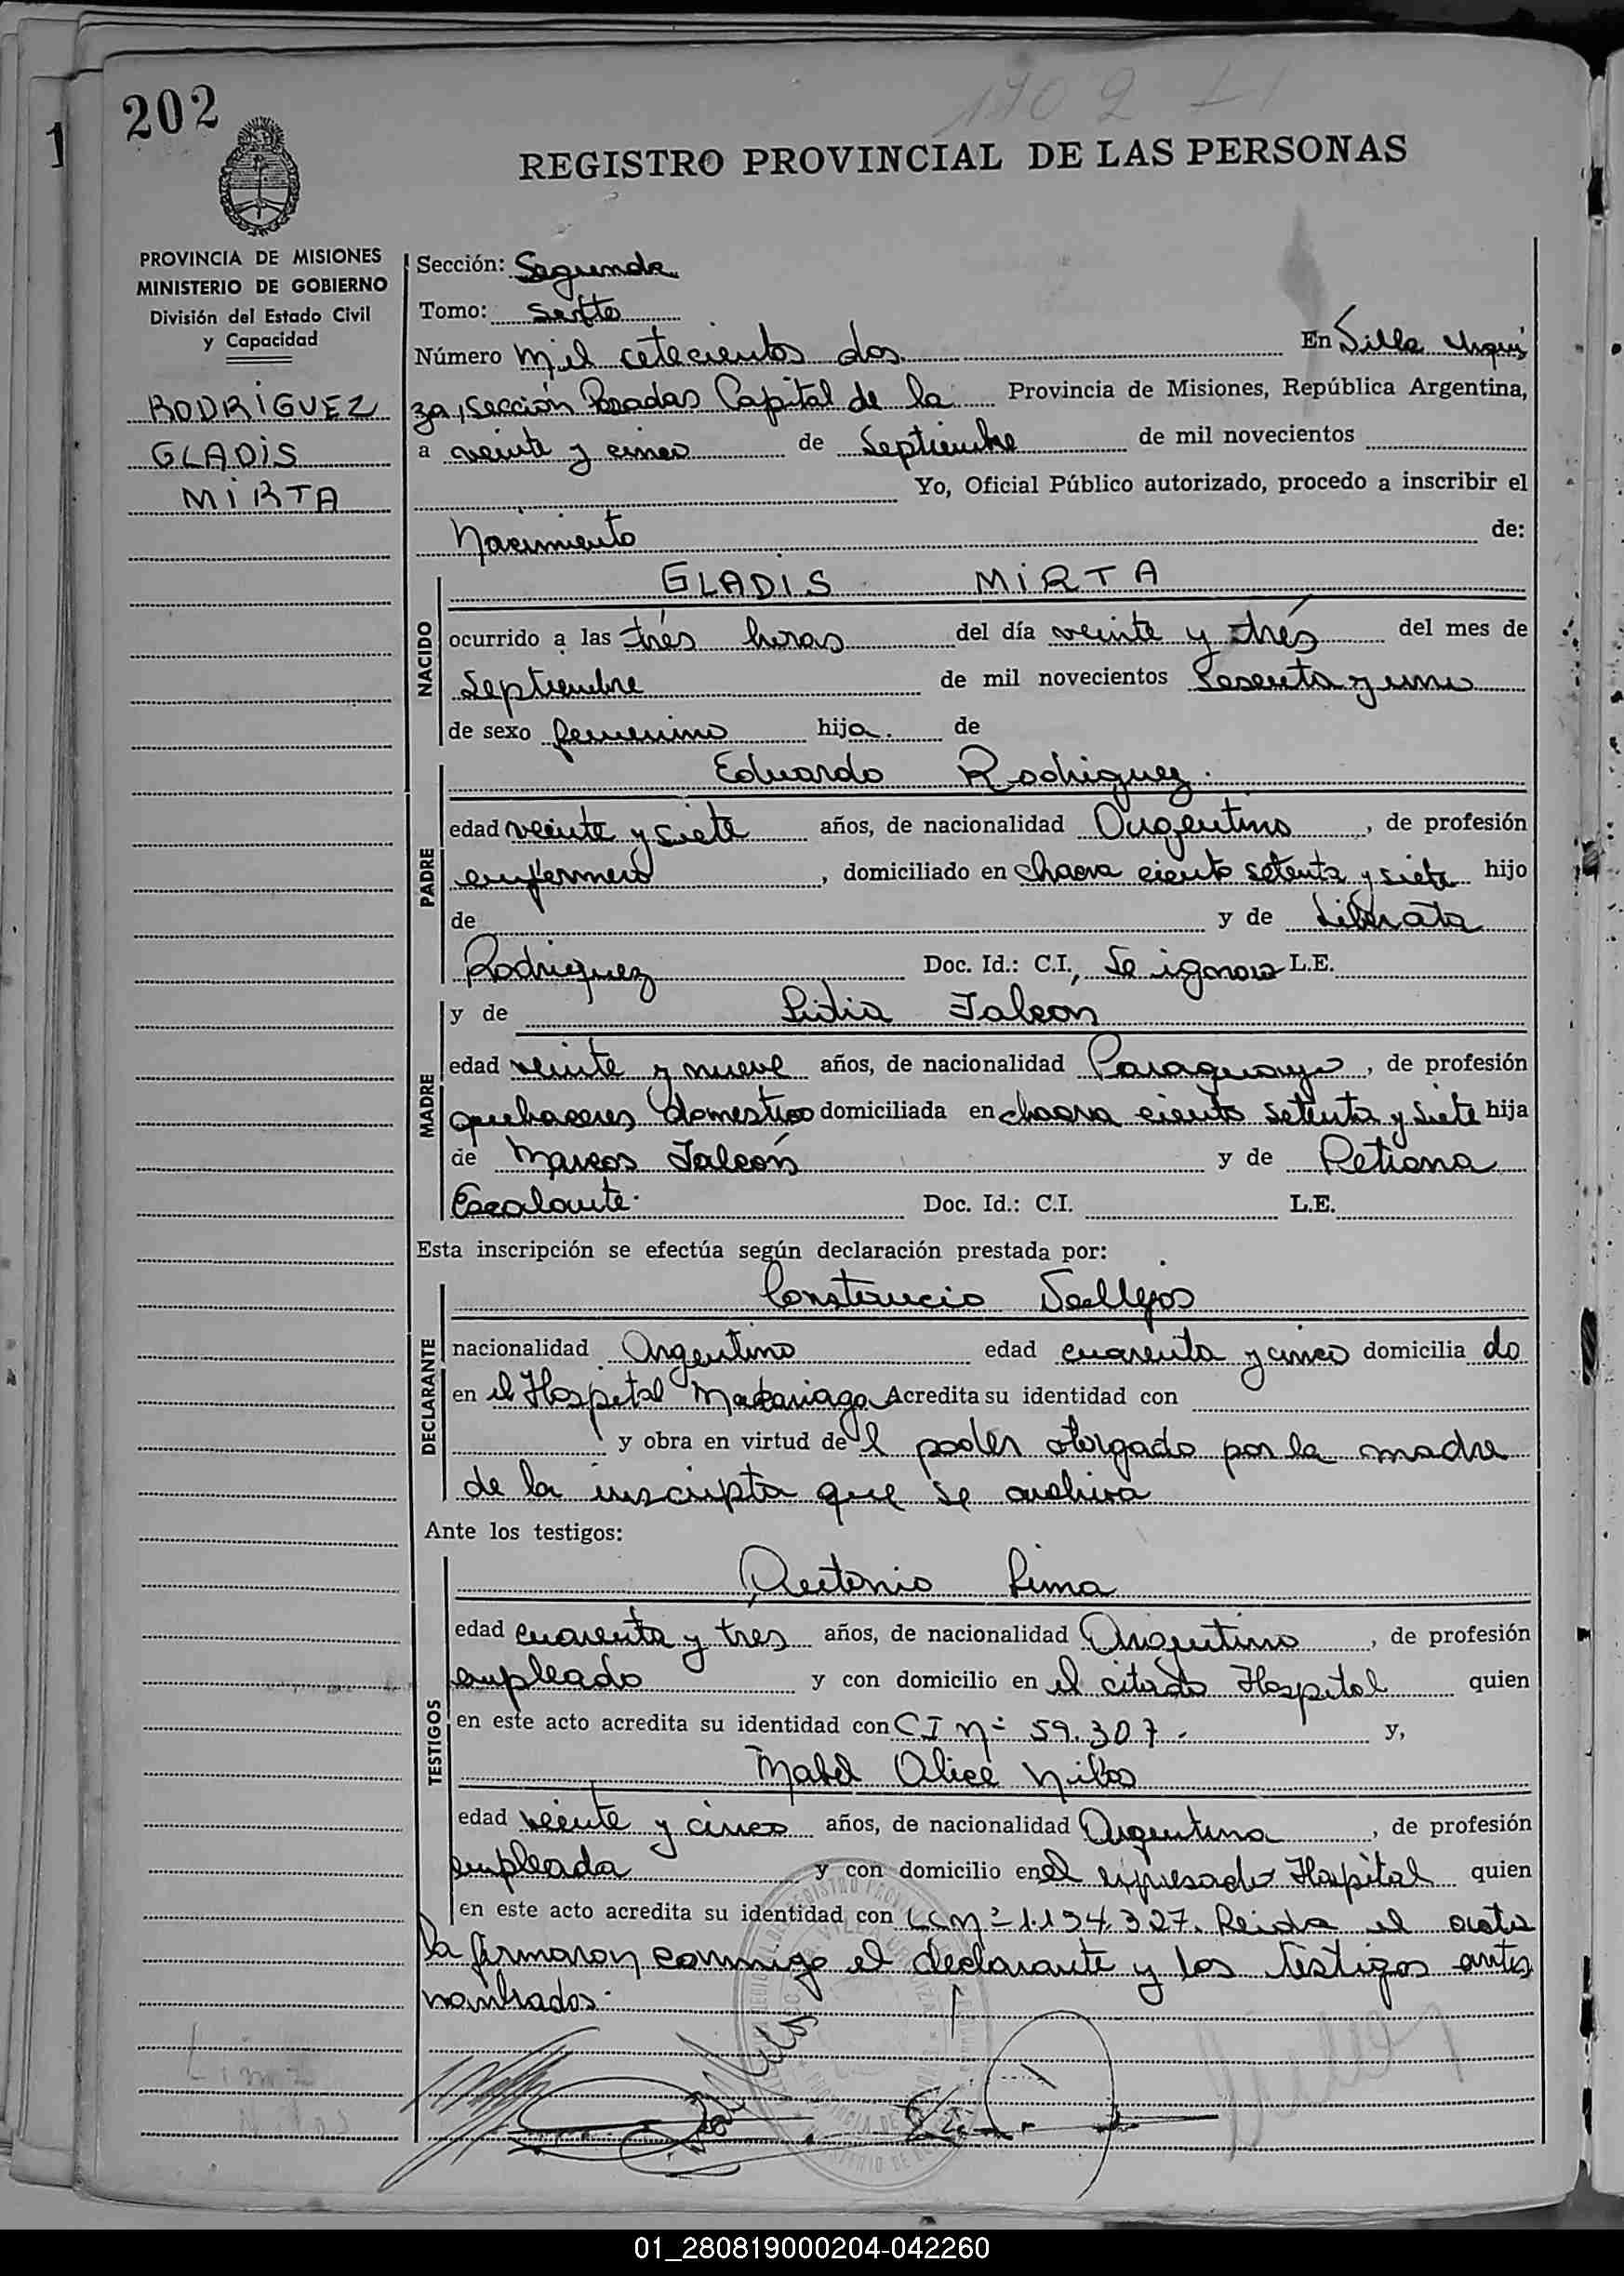 202
1702
1
REGISTRO PROVINCIAL DE LAS PERSONAS
PROVINCIA DE MISIONES
MINISTERIO DE GOBIERNO
División del Estado Civil
y Capacidad
RODRIGUEZ
GLADIS
MIRTA
Sección: Segunda
Tomo: Sexto
Número mil cetecientos dos En Villa Urqui
za, Sección Posadas Capital de la Provincia de Misiones, República Argentina,
a veinte y cinco de Septiembre de mil novecientos
Yo, Oficial Público autorizado, procedo a inscribir el
Nacimiento de:
NACIDO
GLADIS MIRTA
ocurrido a las trés horas del día veinte y trés del mes de
Septiembre de mil novecientos Sesenta y uno
de sexo femenino hija. de
PADRE
Eduardo Rodriguez.
edad veinte y siete años, de nacionalidad Argentino, de profesión
enfermero, domiciliado en chacra ciento setenta y siete hijo
de y de Liberata
Rodriguez Doc. Id.: C.I., Se ignora L.E.
MADRE
y de Lidia Falcon
edad veinte y nueve años, de nacionalidad Paraguaya, de profesión
quehaceres domestico domiciliada en chacra ciento setenta y siete hija
de Marcos Falcón y de Petrona
Escalante. Doc. Id.: C.I. L.E.
Esta inscripción se efectúa según declaración prestada por:
DECLARANTE
Constancio Vallejos
nacionalidad Argentino edad cuarenta y cinco domicilia do
en el Hospital Madariaga Acredita su identidad con
y obra en virtud de l poder otorgado por la madre
de la inscripta que se archiva
Ante los testigos:
TESTIGOS
Antonio Lima
edad cuarenta y tres años, de nacionalidad Argentino, de profesión
empleado y con domicilio en el citado Hospital quien
en este acto acredita su identidad con CI Nº 59.307.- y,
Mabel Alice
edad veinte y cinco años, de nacionalidad Argentina, de profesión
empleada y con domicilio en el expresado Hospital quien
en este acto acredita su identidad con LC Nº 1.194.327. Leida el acta
la firmaron conmigo el declarante y los testigos antes
nombrados.
01_280819000204-042260